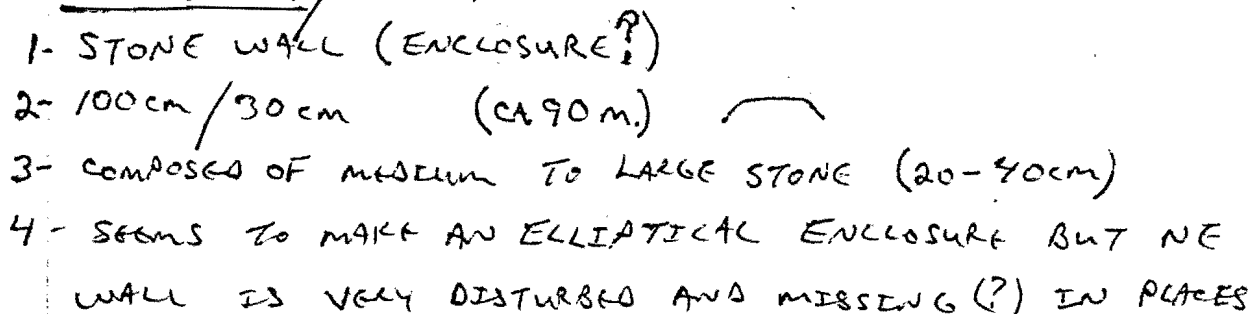 1- STONE WALL (ENCLOSURE?)
2- 100 cm / 30 cm (CA 90 m.)
3- COMPOSED OF MEDIUM TO LARGE STONE (20-40cm)
4- SEEMS TO MAKE AN ELLIPTICAL ENCLOSURE BUT NE
WALL IS VERY DISTURBED AND MISSING (?) IN PLACES